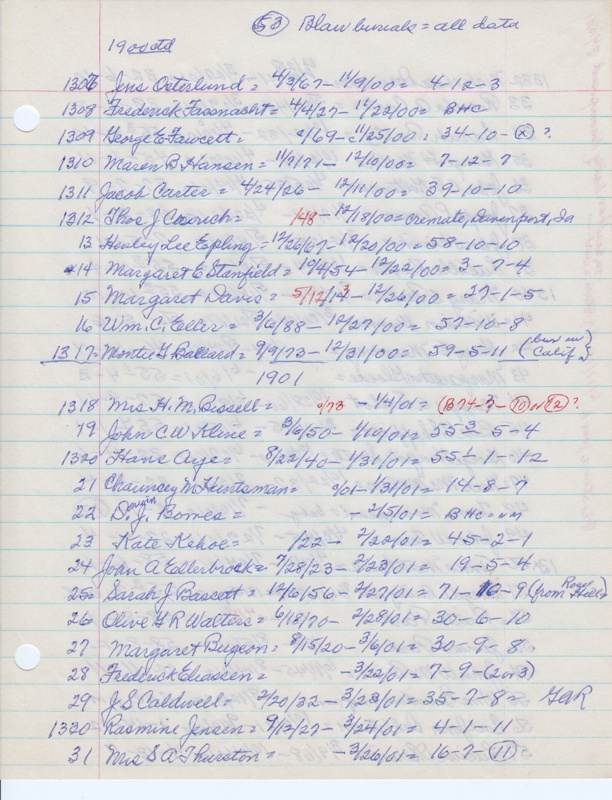 (53) Blair burials = all data
1900 ctd
1306 Jens Osterlund = 4/3/67 - 11/9/00 = 4-12-3
1308 Frederick Fassnacht = 4/4/27 - 11/22/00 = BHC
1309 George E Fawcett = 0/69 - 11/25/00 = 34-10-(x) ?
1310 Maren B Hansen = 11/9/71 - 12/10/00 = 7-12-7
1311 Jacob Carter = 4/24/26 - 12/11/00 = 39-10-10
1312 Thos J = /48 - 12/18/00 = cremate, Davenport, Ia
13 Henley Lee Epling = 12/26/67 - 12/20/00 = 58-10-10
14 Margaret E Stanfield = 10/4/54 - 12/22/00 = 3-7-4
15 Margaret Davis = 5/12/13 - 12/26/00 = 27-1-5
16 Wm. C. Eller = 3/6/88 - 12/27/00 = 57-10-8
1317 = Montie G Ballard = 9/9/73 - 12/31/00 = 59-5-11 (bur in Calif)
1901
1318 Mrs H. M. Bissell = 0/73 - 1/4/01 = (B74-?-(10) or (12) ?
19 John C W Kline = 3/6/50 - 1/10/01 = 55-5-4
1320 Hans Aye = 8/22/40 - 1/31/01 = 55-1-12
21 Chauncey M Huntsman = 0/01 - 1/31/01 = 14-8-7
22 D. J. Bowes = - 2/5/01 = BHC = nm
23 Kate Kehoe = /22 - 2/20/01 = 45-2-1
24 John A Ellerbrock = 7/28/23 - 2/23/01 = 19-5-4
25 = Sarah J Bassett = 12/6/56 - 2/27/01 = 71-16-9 (from Rose Hill)
26 Olive G R Walters = 6/18/70 - 2/28/01 = 30-6-10
27 Margaret Bugeon = 8/15/20 - 3/6/01 = 30-9-8
28 Frederick Eliassen = - 3/22/01 = 7-9-(2 or 3)
29 J S Caldwell = 2/20/32 - 3/23/01 = 35-7-8 = GAR
1330 Rasmine Jensen = 9/12/27 - 3/24/01 = 4-1-11
31 Mrs S A Thurston = - 3/26/01 = 16-7-(11)